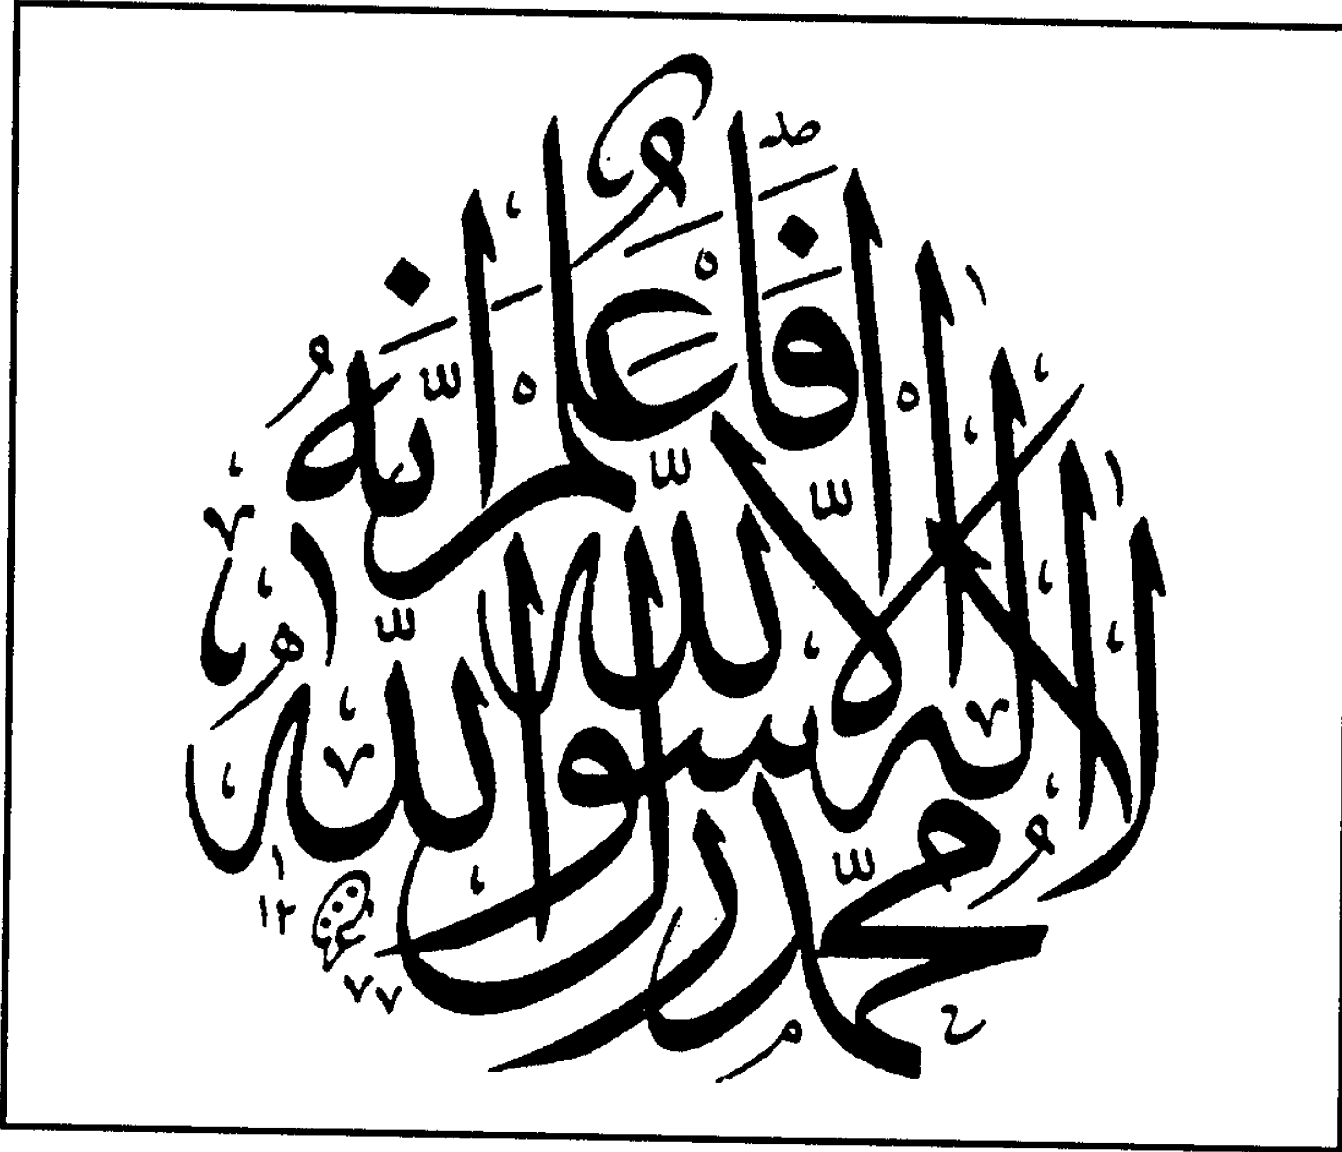 فاعلم انه
لا اله الا الله
محمد رسول الله